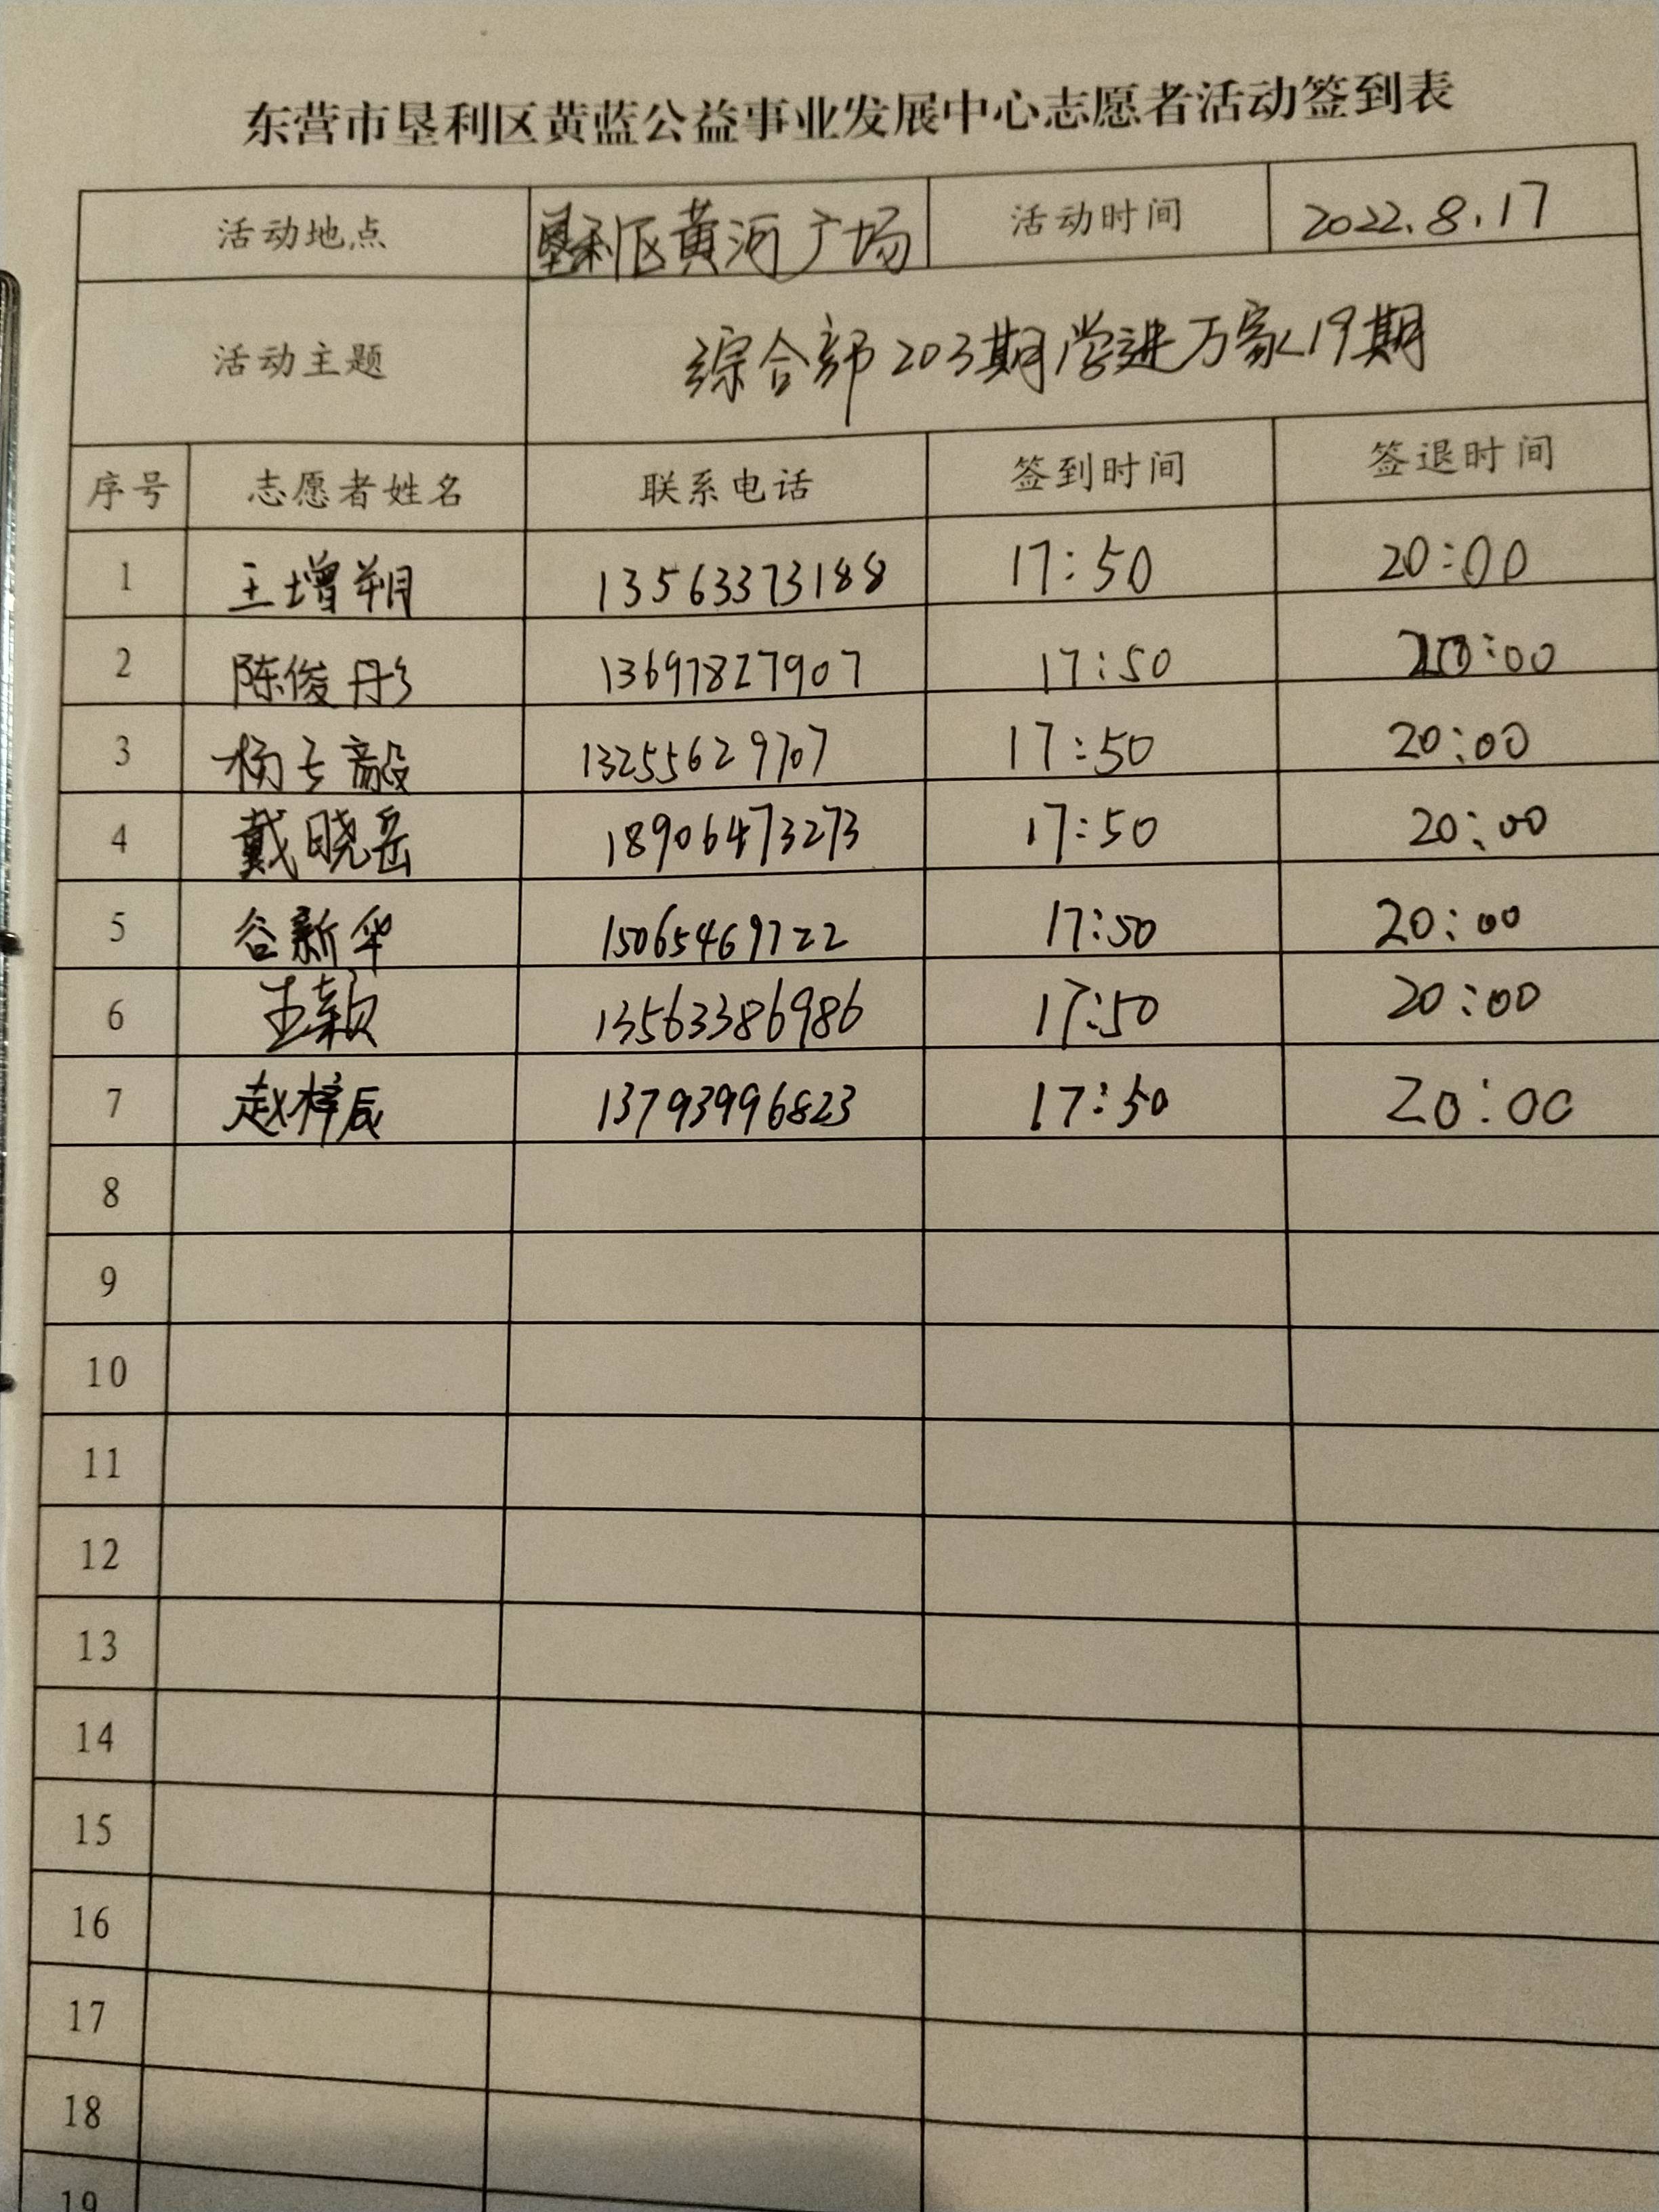 东营市垦利区黄蓝公益事业发展中心志愿者活动签到表
活动地点 垦利区黄河广场 活动时间 2022.8.17
活动主题 综合部203期学进万家19期
序号 志愿者姓名 联系电话 签到时间 签退时间
1 王增翔 13563373188 17:50 20:00
2 陈俊彤 13697827907 17:50 20:00
3 杨 毅 13255629707 17:50 20:00
4 戴晓岳 18906473273 17:50 20:00
5 谷新华 15065469722 17:50 20:00
6 王颖 13563386986 17:50 20:00
7 赵梓辰 13793996823 17:50 20:00
8
9
10
11
12
13
14
15
16
17
18
19